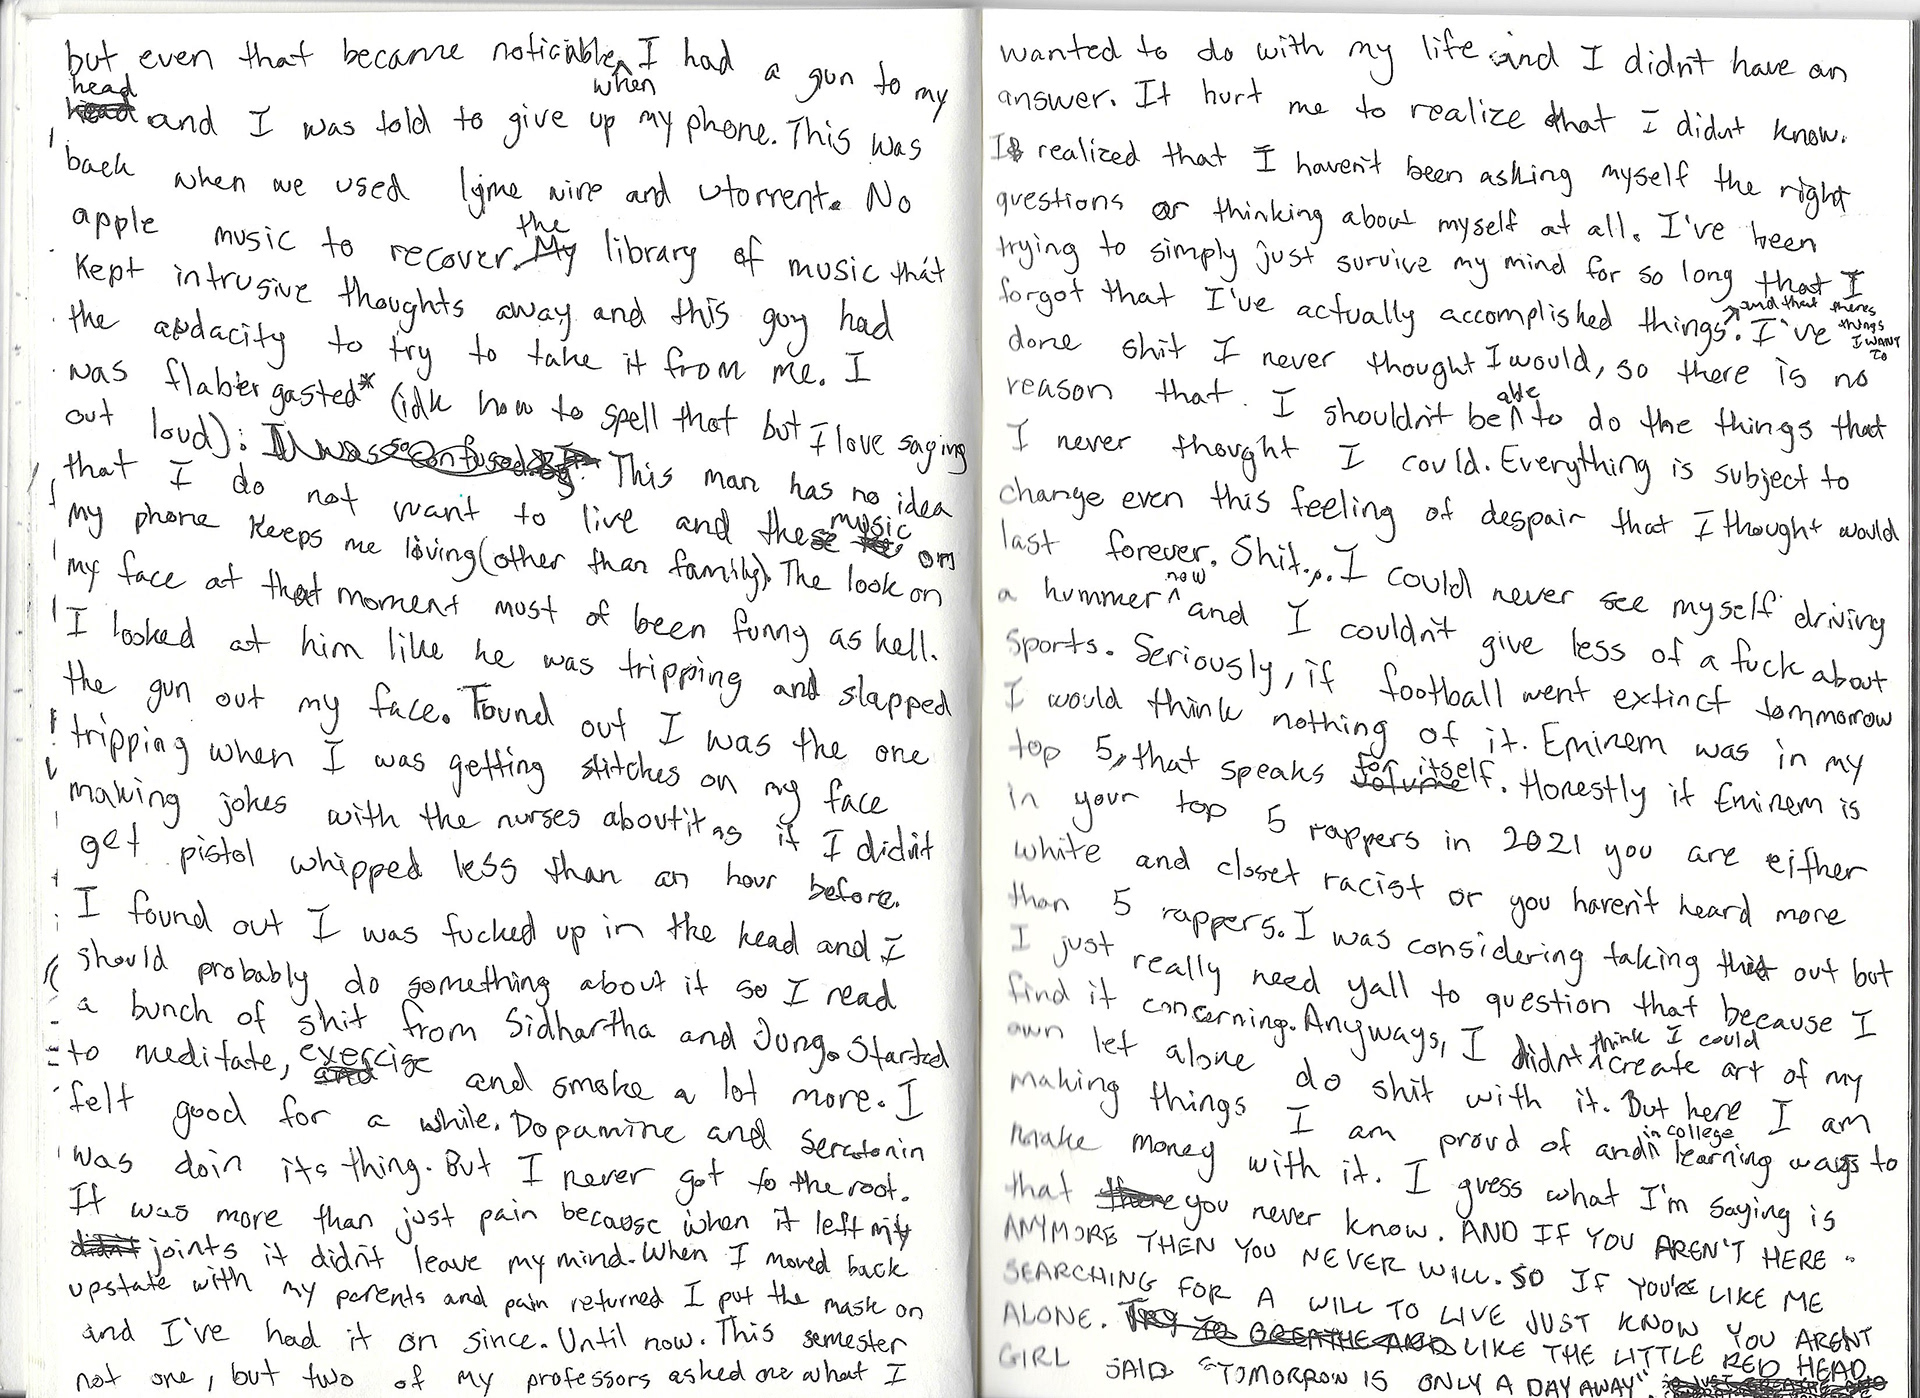 but even that became noticiable, I had a gun to my
when
head
head and I was told to give up my phone. This was
back when we used lyme wire and utorrent. No
apple music to recover. the My library of music that
kept intrusive thoughts away and this guy had
the audacity to try to take it from me. I
was flabergasted* (idk how to spell that but I love saying
out loud): I was so confused This man has no idea
that I do not want to live and these music on
my phone keeps me living (other than family). The look on
my face at that moment must of been funny as hell.
I looked at him like he was tripping and slapped
the gun out my face. Found out I was the one
tripping when I was getting stitches on my face
making jokes with the nurses about it as if I didn't
get pistol whipped less than an hour before.
I found out I was fucked up in the head and I
should probably do something about it so I read
a bunch of shit from Sidhartha and Jung. Started
to meditate, exercise and and smoke a lot more. I
felt good for a while. Dopamine and Seratonin
was doin its thing. But I never got to the root.
It was more than just pain because when it left my
didn't joints it didn't leave my mind. When I moved back
upstate with my parents and pain returned I put the mask on
and I've had it on since. Until now. This semester
not one, but two of my professors asked me what I
wanted to do with my life and I didn't have an
answer. It hurt me to realize that I didnt know.
I realized that I haven't been asking myself the right
questions or thinking about myself at all. I've been
trying to simply just survive my mind for so long that I
forgot that I've actually accomplished things. I've
and that theres things I WANT TO
done shit I never thought I would, so there is no
reason that I shouldn't be able to do the things that
I never thought I could. Everything is subject to
change even this feeling of despair that I thought would
last forever. Shit... I could never see myself driving
a hummer now and I couldn't give less of a fuck about
sports. Seriously, if football went extinct tommorrow
I would think nothing of it. Eminem was in my
top 5, that speaks for itself. volume Honestly if Eminem is
in your top 5 rappers in 2021 you are either
white and closet racist or you haven't heard more
than 5 rappers. I was considering taking this out but
I just really need yall to question that because I
find it concerning. Anyways, I didnt think I could create art of my
own let alone do shit with it. But here I am
making things I am proud of and in college learning ways to
make money with it. I guess what I'm saying is
that there you never know. AND IF YOU AREN'T HERE
ANYMORE THEN YOU NEVER WILL. SO IF YOU'RE LIKE ME
SEARCHING FOR A WILL TO LIVE JUST KNOW YOU ARENT
ALONE. TRY TO BREATHE AND LIKE THE LITTLE RED HEAD
GIRL SAID "TOMORROW IS ONLY A DAY AWAY".